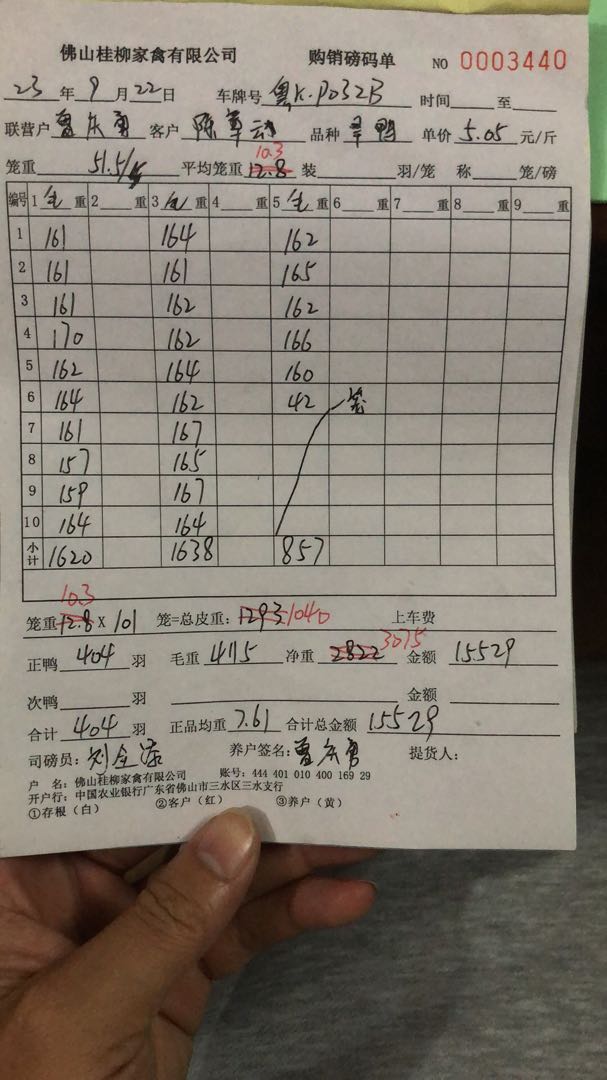 佛山桂柳家禽有限公司 购销磅码单 NO 0003440
23 年 9 月 22 日 车牌号 粤K·P032B 时间 至
联营户 曾庆勇 客户 品种 旱鸭 单价 5.05 元/斤
笼重 51.5/5 平均笼重 12.8 10.3 装 羽/笼 称 笼/磅
编号 1 毛 重 2 重 3 毛 重 4 重 5 毛 重 6 重 7 重 8 重 9 重
1 161 164 162
2 161 161 165
3 161 162 162
4 170 162 166
5 162 164 160
6 164 162 42 笼
7 161 167
8 157 165
9 159 167
10 164 164
小计 1620 1638 857
笼重 12.8 10.3 X 101 笼=总皮重: 1293 1040 上车费
正鸭 404 羽 毛重 4115 净重 2822 3075 金额 15529
次鸭 羽 金额
合计 404 羽 正品均重 7.61 合计总金额 15529
司磅员: 养户签名: 曾庆勇 提货人:
户 名: 佛山桂柳家禽有限公司 账号: 444 401 010 400 169 29
开户行: 中国农业银行广东省佛山市三水区三水支行
①存根(白) ②客户(红) ③养户(黄)